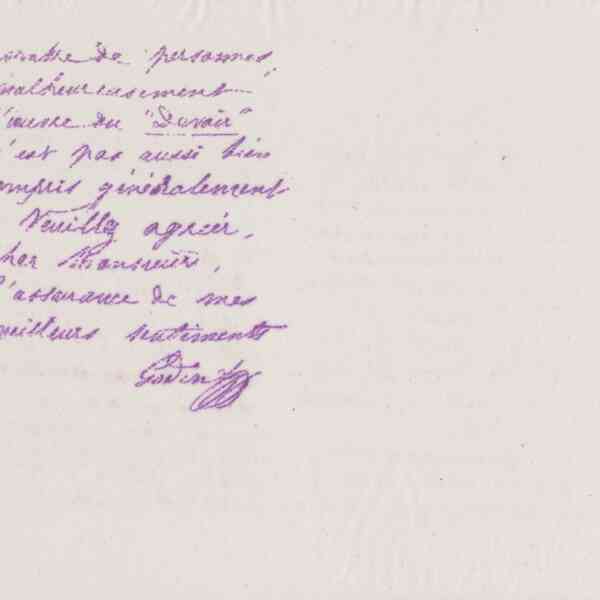 de personnes
malheureusement
l'œuvre du "Devoir"
n'est pas aussi bien
compris généralement
Veuillez agréer,
cher Monsieur,
l'assurance de mes
meilleurs sentiments
Godin